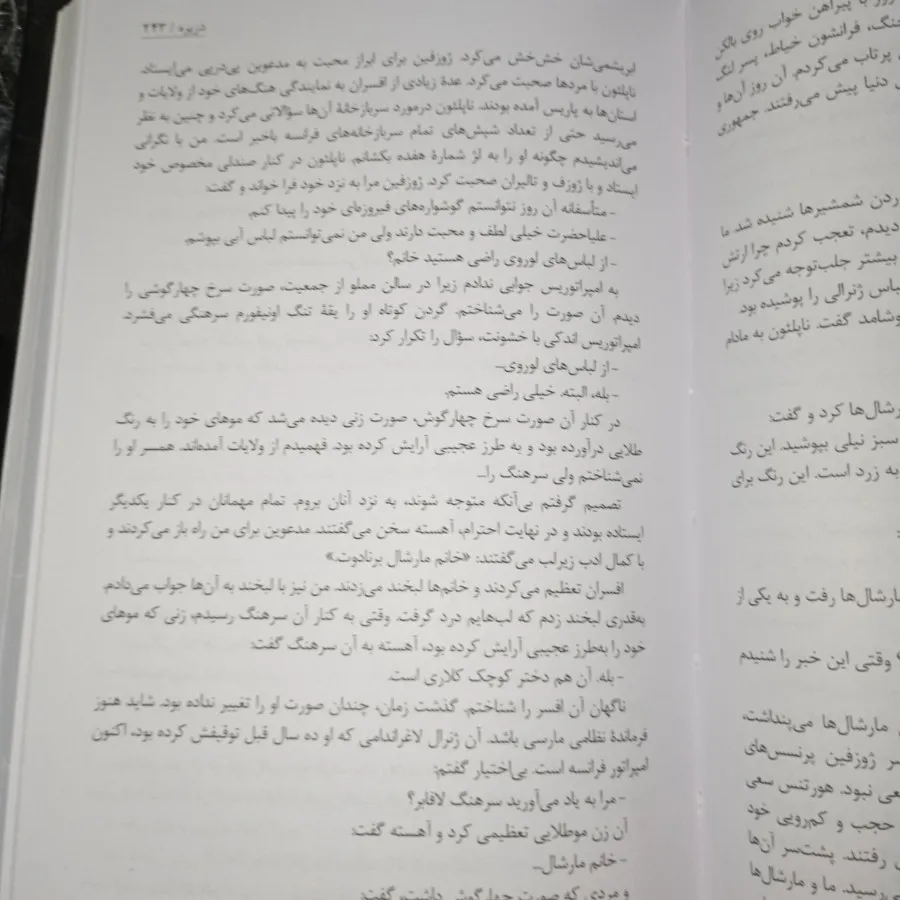 دزیره / ۲۴۳
ابریشمی‌شان خش‌خش می‌کرد. ژوزفین برای ابراز محبت به مدعوین پی‌درپی می‌ایستاد.
ناپلئون با مردها صحبت می‌کرد. عدهٔ زیادی از افسران به نمایندگی هنگ‌های خود از ولایات و
استان‌ها به پاریس آمده بودند. ناپلئون درمورد سربازخانهٔ آن‌ها سؤالاتی می‌کرد و چنین به نظر
می‌رسید حتی از تعداد شپش‌های تمام سربازخانه‌های فرانسه باخبر است. من با نگرانی
می‌اندیشیدم چگونه او را به لژ شمارهٔ هفده بکشانم. ناپلئون در کنار صندلی مخصوص خود
ایستاد و با ژوزف و تالیران صحبت کرد. ژوزفین مرا به نزد خود فرا خواند و گفت:
- متأسفانه آن روز نتوانستم گوشواره‌های فیروزه‌ای خود را پیدا کنم.
- علیاحضرت خیلی لطف و محبت دارند ولی من نمی‌توانستم لباس آبی بپوشم.
- از لباس‌های لوروی راضی هستید خانم؟
به امپراتوریس جوابی ندادم زیرا در سالن مملو از جمعیت، صورت سرخ چهارگوشی را
دیدم. آن صورت را می‌شناختم. گردن کوتاه او را یقهٔ تنگ اونیفورم سرهنگی می‌فشرد.
امپراتوریس اندکی با خشونت، سؤال را تکرار کرد:
- از لباس‌های لوروی...
- بله، البته. خیلی راضی هستم.
در کنار آن صورت سرخ چهارگوش، صورت زنی دیده می‌شد که موهای خود را به رنگ
طلایی درآورده بود و به طرز عجیبی آرایش کرده بود. فهمیدم از ولایات آمده‌اند. همسر او را
نمی‌شناختم ولی سرهنگ را...
تصمیم گرفتم بی‌آنکه متوجه شوند، به نزد آنان بروم. تمام مهمانان در کنار یکدیگر
ایستاده بودند و در نهایت احترام، آهسته سخن می‌گفتند. مدعوین برای من راه باز می‌کردند و
با کمال ادب زیرلب می‌گفتند: «خانم مارشال برنادوت.»
افسران تعظیم می‌کردند و خانم‌ها لبخند می‌زدند. من نیز با لبخند به آن‌ها جواب می‌دادم.
به‌قدری لبخند زدم که لب‌هایم درد گرفت. وقتی به کنار آن سرهنگ رسیدم، زنی که موهای
خود را به‌طرز عجیبی آرایش کرده بود، آهسته به آن سرهنگ گفت:
- بله. آن هم دختر کوچک کلاری است.
ناگهان آن افسر را شناختم. گذشت زمان، چندان صورت او را تغییر نداده بود. شاید هنوز
فرماندهٔ نظامی مارسی باشد. آن ژنرال لاغراندامی که او ده سال قبل توقیفش کرده بود، اکنون
امپراتور فرانسه است. بی‌اختیار گفتم:
- مرا به یاد می‌آورید سرهنگ لافابر؟
آن زن موطلایی تعظیمی کرد و آهسته گفت:
- خانم مارشال...
و مردی که صورت چهارگوش داشت، گفت:
با پیراهن خواب روی بالکن
فرانشون خیاط، پسر لنگ
پرتاب می‌کردم. آن روز آن‌ها و
دنیا پیش می‌رفتند. جمهوری
شمشیرها شنیده شد. ما
دیدم، تعجب کردم چرا ارتش
بیشتر جلب‌توجه می‌کرد زیرا
لباس ژنرالی را پوشیده بود.
گفت. ناپلئون به مادام
کرد و گفت:
سبز نیلی بپوشید. این رنگ
به زرد است. این رنگ برای
مارشال‌ها رفت و به یکی از
وقتی این خبر را شنیدم
مارشال‌ها می‌پنداشت،
ژوزفین پرنسس‌های
نبود. هورتنس سعی
حجب و کم‌رویی خود
رفتند. پشت‌سر آن‌ها
ما و مارشال‌ها